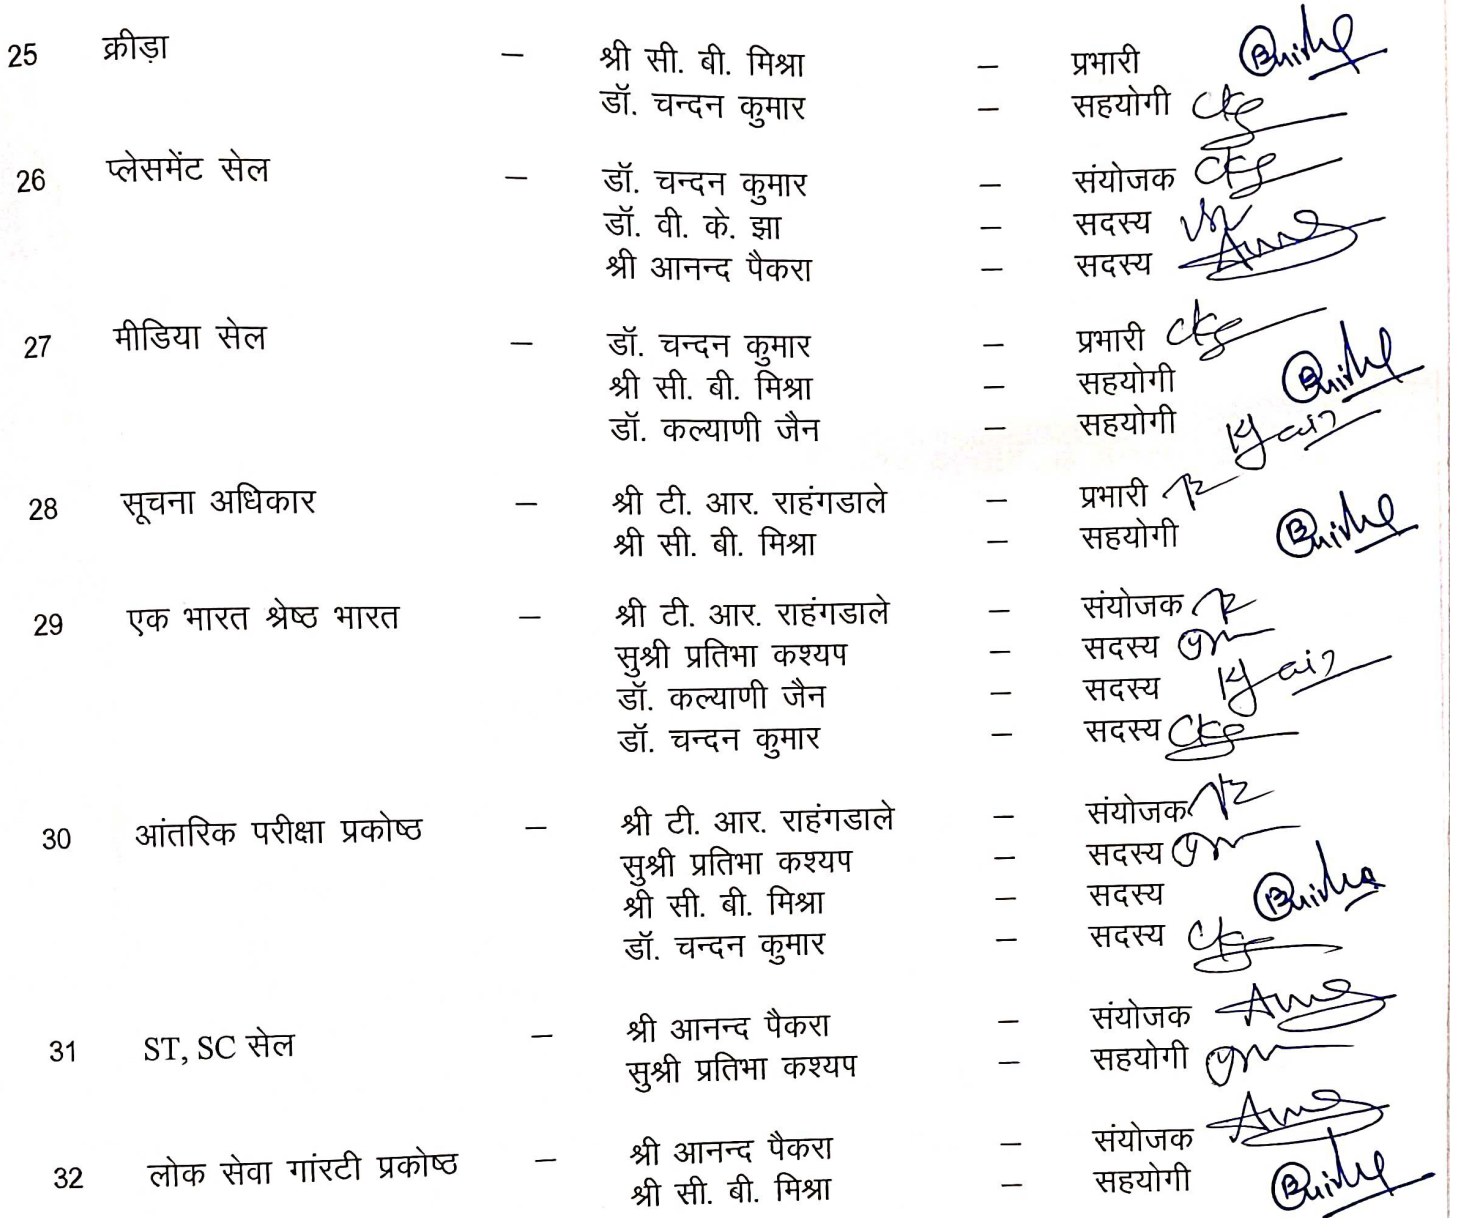 25 क्रीड़ा – श्री सी. बी. मिश्रा – प्रभारी
डॉ. चन्दन कुमार – सहयोगी
26 प्लेसमेंट सेल – डॉ. चन्दन कुमार – संयोजक
डॉ. वी. के. झा – सदस्य
श्री आनन्द पैकरा – सदस्य
27 मीडिया सेल – डॉ. चन्दन कुमार – प्रभारी
श्री सी. बी. मिश्रा – सहयोगी
डॉ. कल्याणी जैन – सहयोगी
28 सूचना अधिकार – श्री टी. आर. राहंगडाले – प्रभारी
श्री सी. बी. मिश्रा – सहयोगी
29 एक भारत श्रेष्ठ भारत – श्री टी. आर. राहंगडाले – संयोजक
सुश्री प्रतिभा कश्यप – सदस्य
डॉ. कल्याणी जैन – सदस्य
डॉ. चन्दन कुमार – सदस्य
30 आंतरिक परीक्षा प्रकोष्ठ – श्री टी. आर. राहंगडाले – संयोजक
सुश्री प्रतिभा कश्यप – सदस्य
श्री सी. बी. मिश्रा – सदस्य
डॉ. चन्दन कुमार – सदस्य
31 ST, SC सेल – श्री आनन्द पैकरा – संयोजक
सुश्री प्रतिभा कश्यप – सहयोगी
32 लोक सेवा गांरटी प्रकोष्ठ – श्री आनन्द पैकरा – संयोजक
श्री सी. बी. मिश्रा – सहयोगी